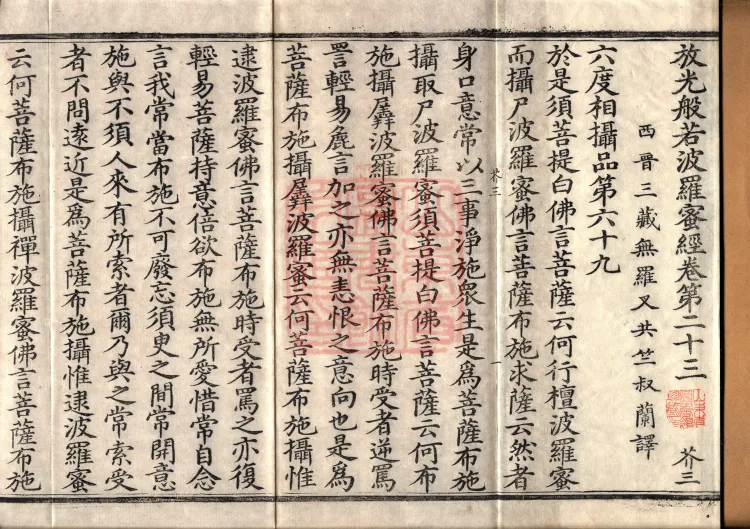 放光般若波羅蜜經卷第二十三 芥三
西晉三藏無羅叉共竺叔蘭譯
六度相攝品第六十九
於是須菩提白佛言菩薩云何行檀波羅蜜
而攝尸波羅蜜佛言菩薩布施求薩云然者
身口意常以三事淨施眾生是爲菩薩布施
芥三 一
攝取尸波羅蜜須菩提白佛言菩薩云何布
施攝羼波羅蜜佛言菩薩布施時受者逆罵
詈輕易麁言加之亦無恚恨之意向也是爲
菩薩布施攝羼波羅蜜云何菩薩布施攝惟
逮波羅蜜佛言菩薩布施時受者罵之亦復
輕易菩薩持意倍欲布施無所愛惜常自念
言我常當布施不可廢忘須臾之間常開意
施與不須人來有所索者爾乃與之常索受
者不問遠近是爲菩薩布施攝惟逮波羅蜜
云何菩薩布施攝禪波羅蜜佛言菩薩布施